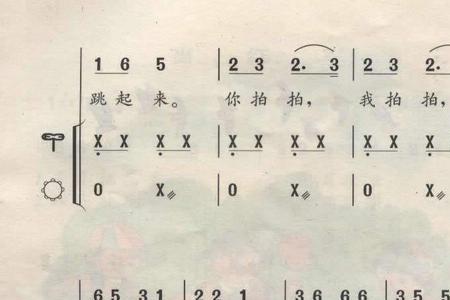 1 6 5 2 3 2. 3 2 3 2.
跳 起 来。 你 拍 拍， 我 拍 拍，
X X X X X X X X X X X
0 X 0 X 0 X
6 5 3 1 2 2 1 3 6 6 6 3 5 5